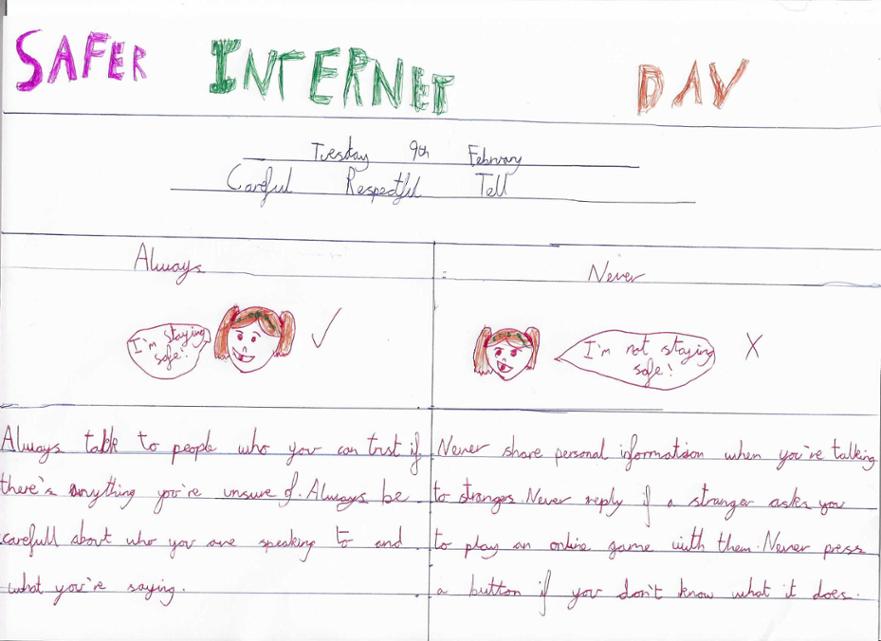 SAFER INTERNET DAY
Tuesday 9th February
Careful Respectful Tell
Always
Never
I'm staying
safe!
✓
I'm not staying
safe!
X
Always talk to people who you can trust if
there's anything you're unsure of. Always be
carefull about who you are speaking to and
what you're saying.
Never share personal information when you're talking
to stranges. Never reply if a stranger asks you
to play an online game with them. Never press
a button if you don't know what it does.